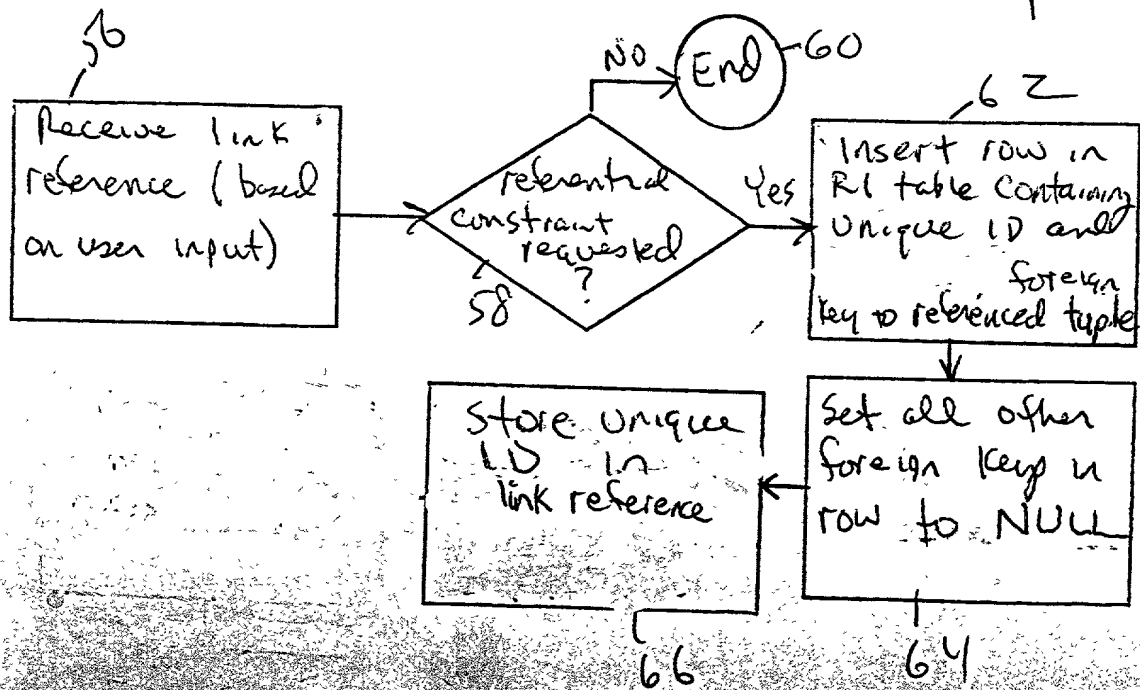 56
Receive link
reference (based
on user input)
referential
constraint
requested
?
58
NO
End
60
Yes
62
Insert row in
RI table containing
unique ID and
foreign
key to referenced tuple
Set all other
foreign keys in
row to NULL
64
Store unique
ID in
link reference
66